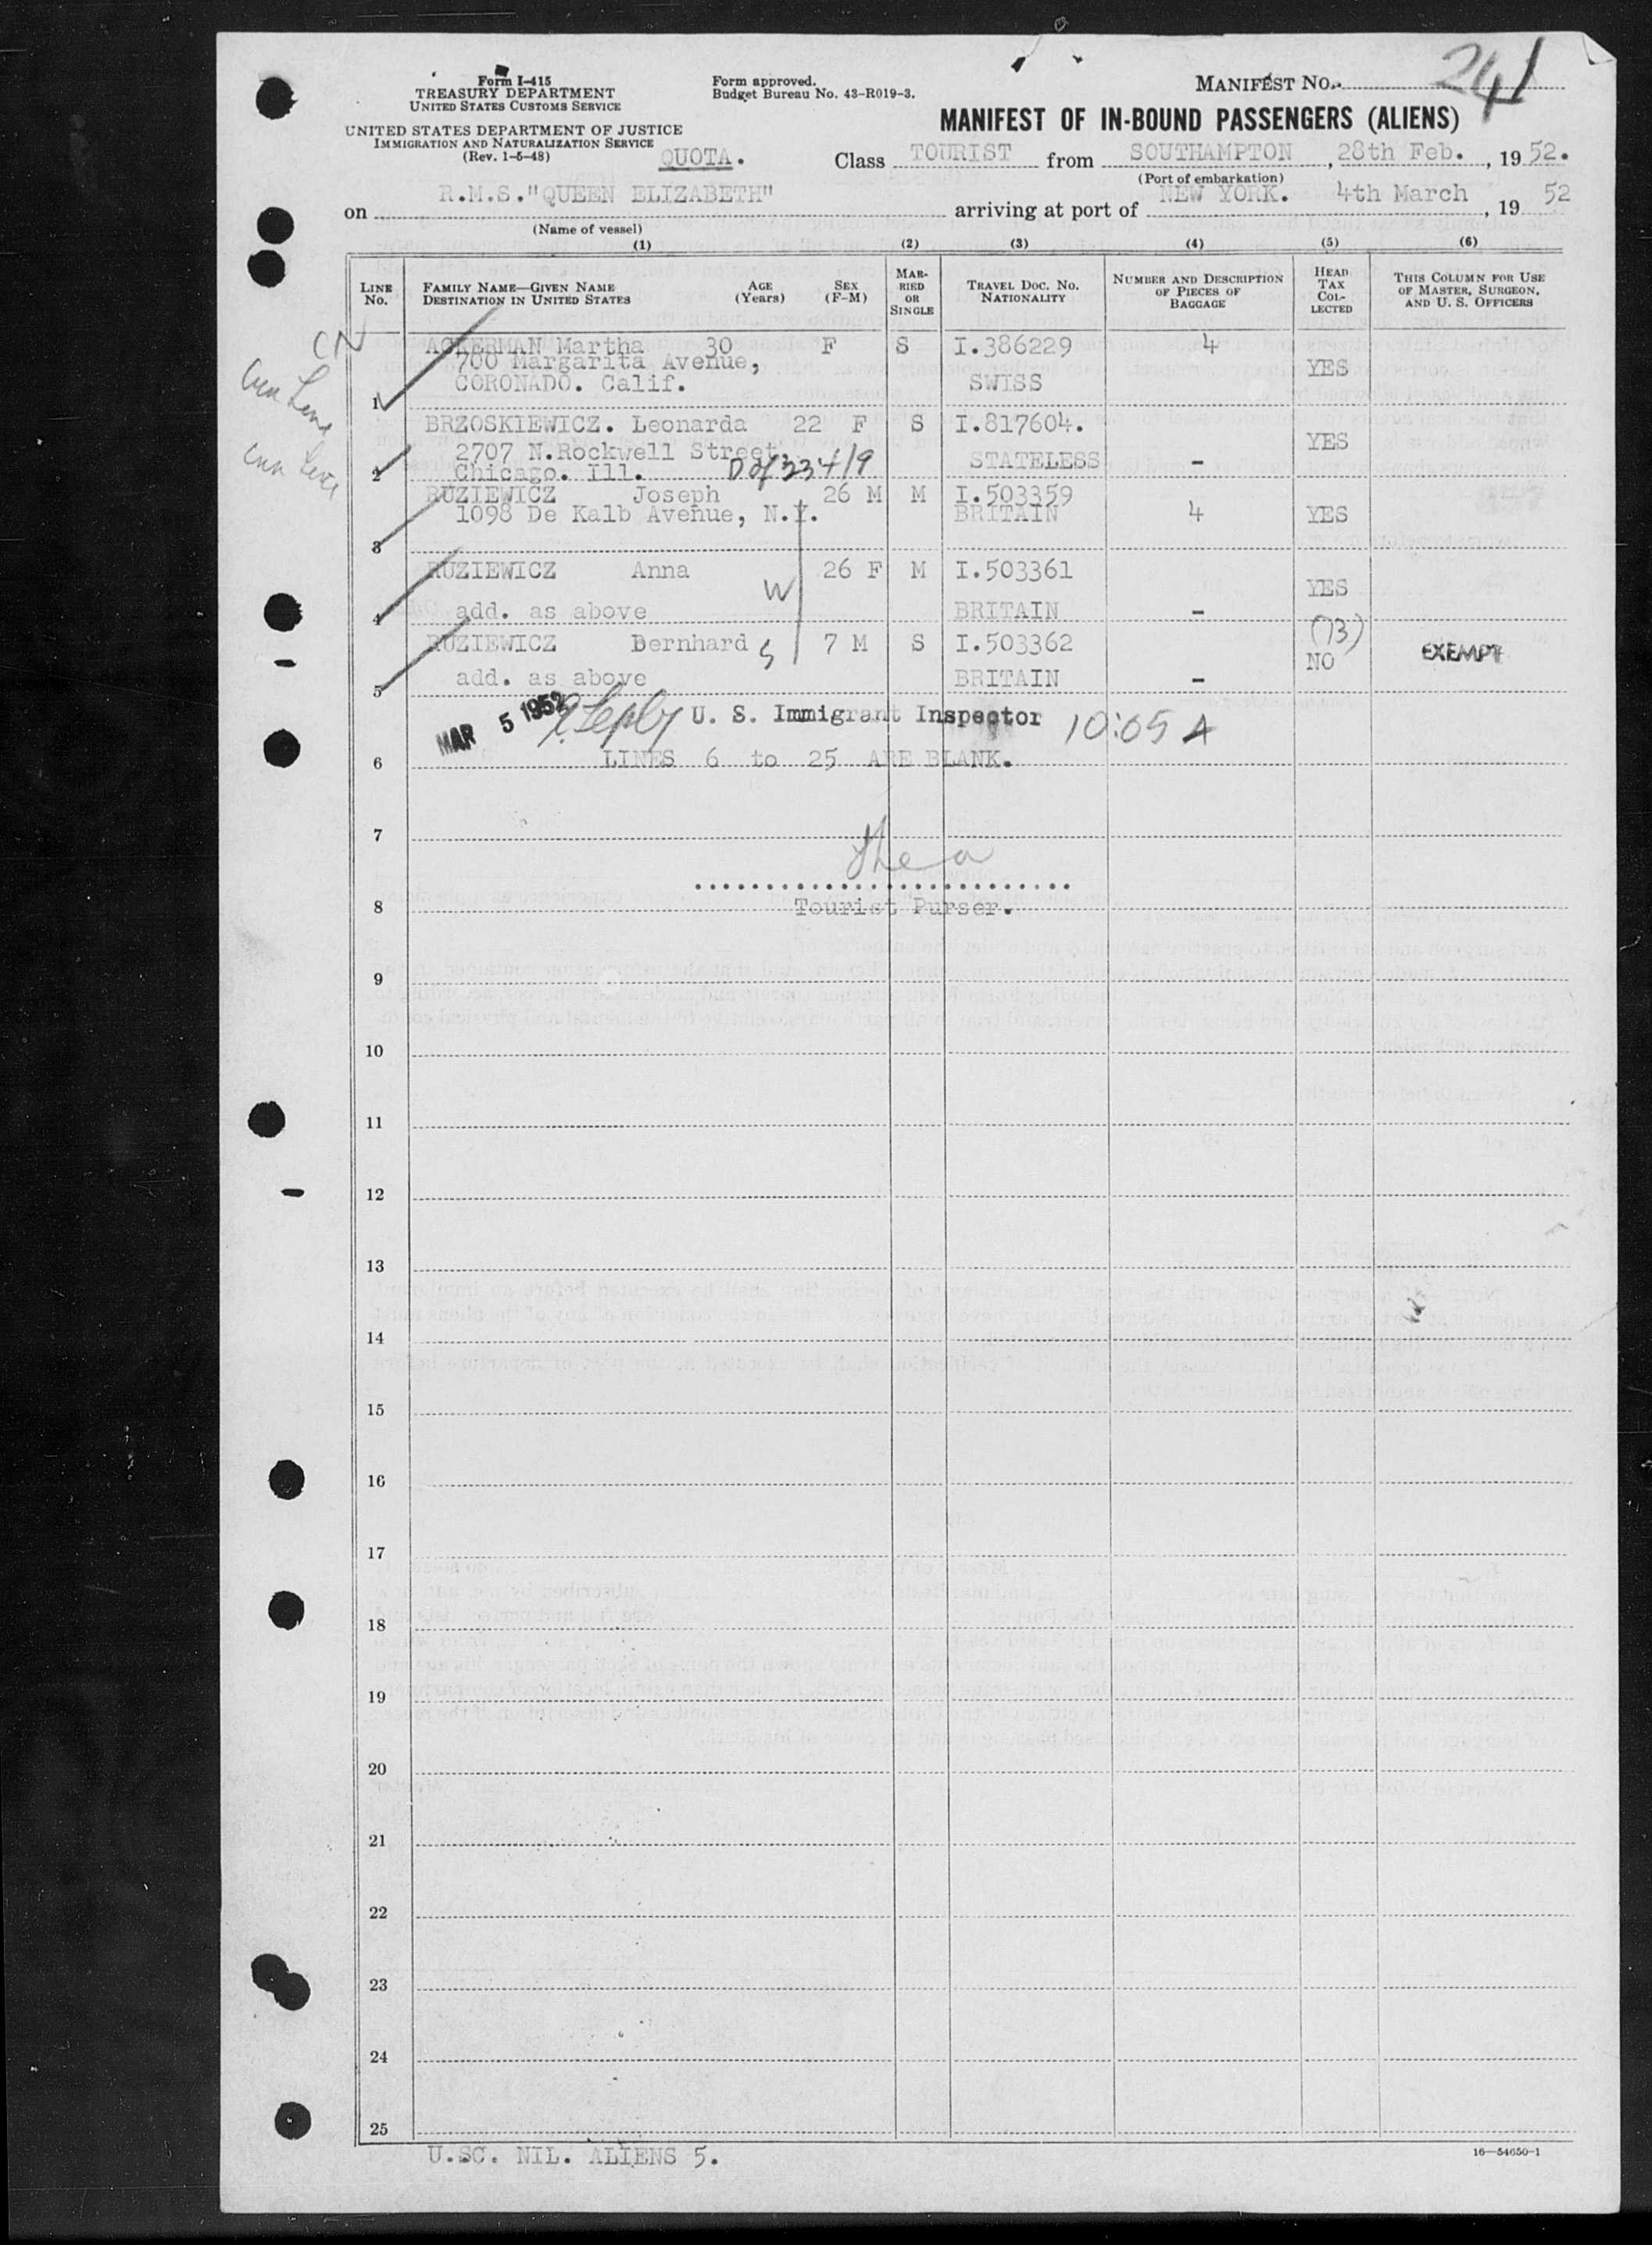 Form I-415
TREASURY DEPARTMENT
UNITED STATES CUSTOMS SERVICE
UNITED STATES DEPARTMENT OF JUSTICE
IMMIGRATION AND NATURALIZATION SERVICE
(Rev. 1-5-48)
QUOTA.
Form approved.
Budget Bureau No. 43-R019-3.
MANIFEST NO. 241
MANIFEST OF IN-BOUND PASSENGERS (ALIENS)
Class TOURIST from SOUTHAMPTON, 28th Feb., 1952.
(Port of embarkation)
on R.M.S."QUEEN ELIZABETH" arriving at port of NEW YORK. 4th March, 19 52
(Name of vessel)
(1) (2) (3) (4) (5) (6)
LINE NO. FAMILY NAME—GIVEN NAME DESTINATION IN UNITED STATES AGE (Years) SEX (F-M) MARRIED OR SINGLE TRAVEL DOC. NO. NATIONALITY NUMBER AND DESCRIPTION OF PIECES OF BAGGAGE HEAD TAX COLLECTED THIS COLUMN FOR USE OF MASTER, SURGEON, AND U. S. OFFICERS
CN
ACKERMAN Martha 30 F S I.386229 4
700 Margarita Avenue, YES
CORONADO. Calif. SWISS
1
BRZOSKIEWICZ. Leonarda 22 F S I.817604.
2707 N.Rockwell Street, STATELESS - YES
2 Chicago. Ill.
RUZIEWICZ Joseph 26 M M I.503359
1098 De Kalb Avenue, N.Y. BRITAIN 4 YES
3
RUZIEWICZ Anna 26 F M I.503361
W YES
4 add. as above BRITAIN -
RUZIEWICZ Bernhard S 7 M S I.503362 (73) NO EXEMPT
5 add. as above BRITAIN -
MAR 5 1952 U. S. Immigrant Inspector 10:05 A
6 LINES 6 to 25 ARE BLANK.
7
8 Tourist Purser.
9
10
11
12
13
14
15
16
17
18
19
20
21
22
23
24
25
U.SC. NIL. ALIENS 5.
16—54650-1